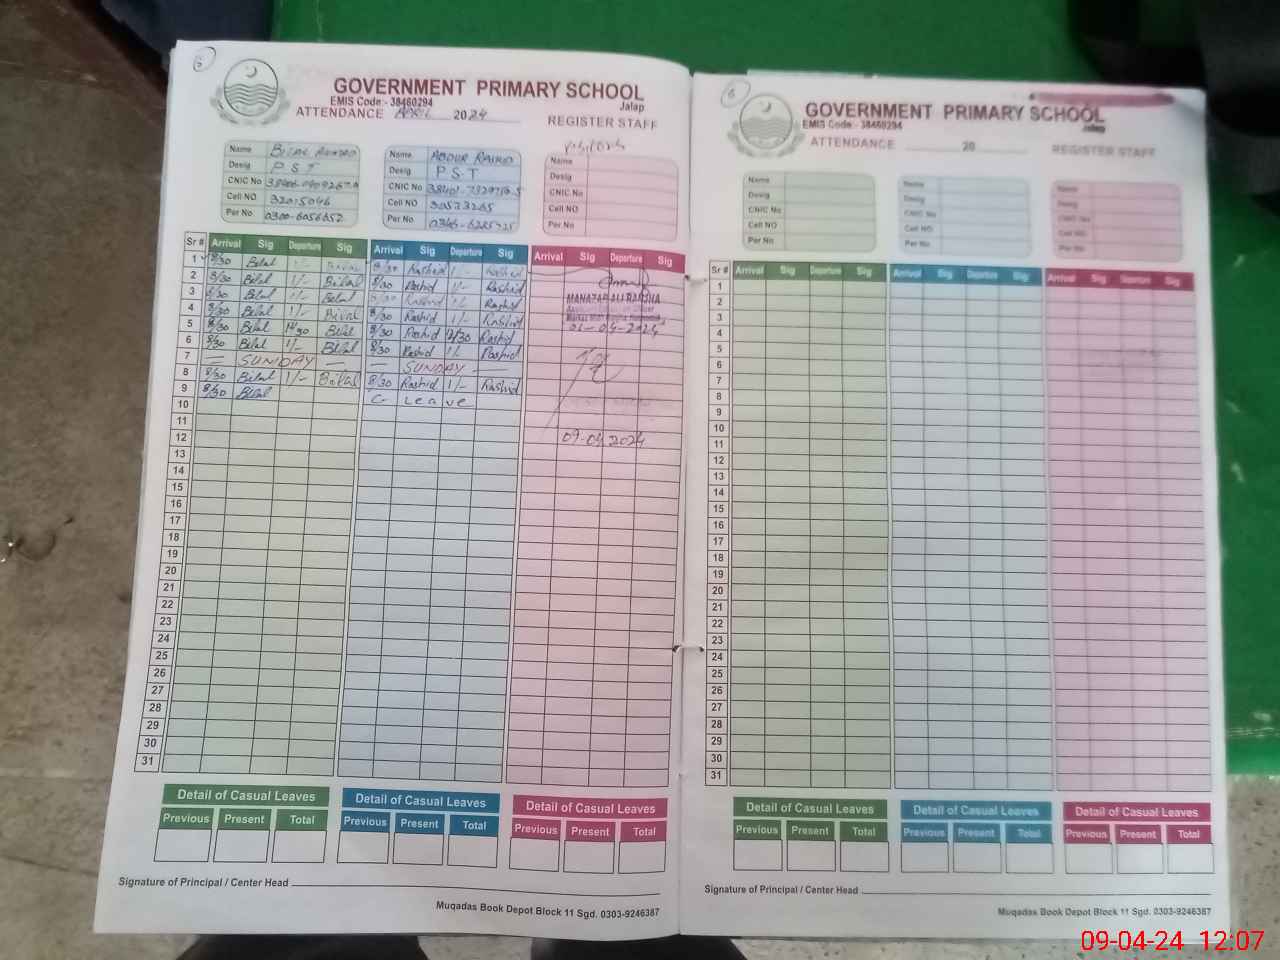 6
GOVERNMENT PRIMARY SCHOOL
EMIS Code:- 38460294 Jalap
ATTENDANCE APRIL 2024 REGISTER STAFF
visitors
Name Bilal Ahmad
Desig P S T
CNIC No
Cell NO 32015046
Per No 0300-6056652
Name Abdur Rashid
Desig P S T
CNIC No
Cell NO
Per No
Name
Desig
CNIC No
Cell NO
Per No
Sr # Arrival Sig Departure Sig Arrival Sig Departure Sig Arrival Sig Departure Sig
1 8/30 Bilal 1/- Bilal 8/30 Rashid 1/- Rashid
2 8/30 Bilal 1/- Bilal 8/30 Rashid 1/- Rashid
3 8/30 Bilal 1/- Bilal 8/30 Rashid 1/- Rashid
4 8/30 Bilal 1/- Bilal 8/30 Rashid 1/- Rashid
5 8/30 Bilal Bilal 8/30 Rashid Rashid
6 8/30 Bilal 1/- Bilal 8/30 Rashid 1/- Rashid
7 — SUNDAY — — SUNDAY —
8 8/30 Bilal 1/- Bilal 8/30 Rashid 1/- Rashid
9 8/30 Bilal C- Leave
10
11
12
13
14
15
16
17
18
19
20
21
22
23
24
25
26
27
28
29
30
31
MANAZAR ALI RANJHA
-04-2024
09-04-2024
Detail of Casual Leaves Detail of Casual Leaves Detail of Casual Leaves
Previous Present Total Previous Present Total Previous Present Total
Signature of Principal / Center Head
Muqadas Book Depot Block 11 Sgd. 0303-9246387
6
GOVERNMENT PRIMARY SCHOOL
EMIS Code:- 38460294 Jalap
ATTENDANCE 20 REGISTER STAFF
Name
Desig
CNIC No
Cell NO
Per No
Name
Desig
CNIC No
Cell NO
Per No
Name
Desig
CNIC No
Cell NO
Per No
Sr # Arrival Sig Departure Sig Arrival Sig Departure Sig Arrival Sig Departure Sig
1
2
3
4
5
6
7
8
9
10
11
12
13
14
15
16
17
18
19
20
21
22
23
24
25
26
27
28
29
30
31
Detail of Casual Leaves Detail of Casual Leaves Detail of Casual Leaves
Previous Present Total Previous Present Total Previous Present Total
Signature of Principal / Center Head
Muqadas Book Depot Block 11 Sgd. 0303-9246387
09-04-24 12:07